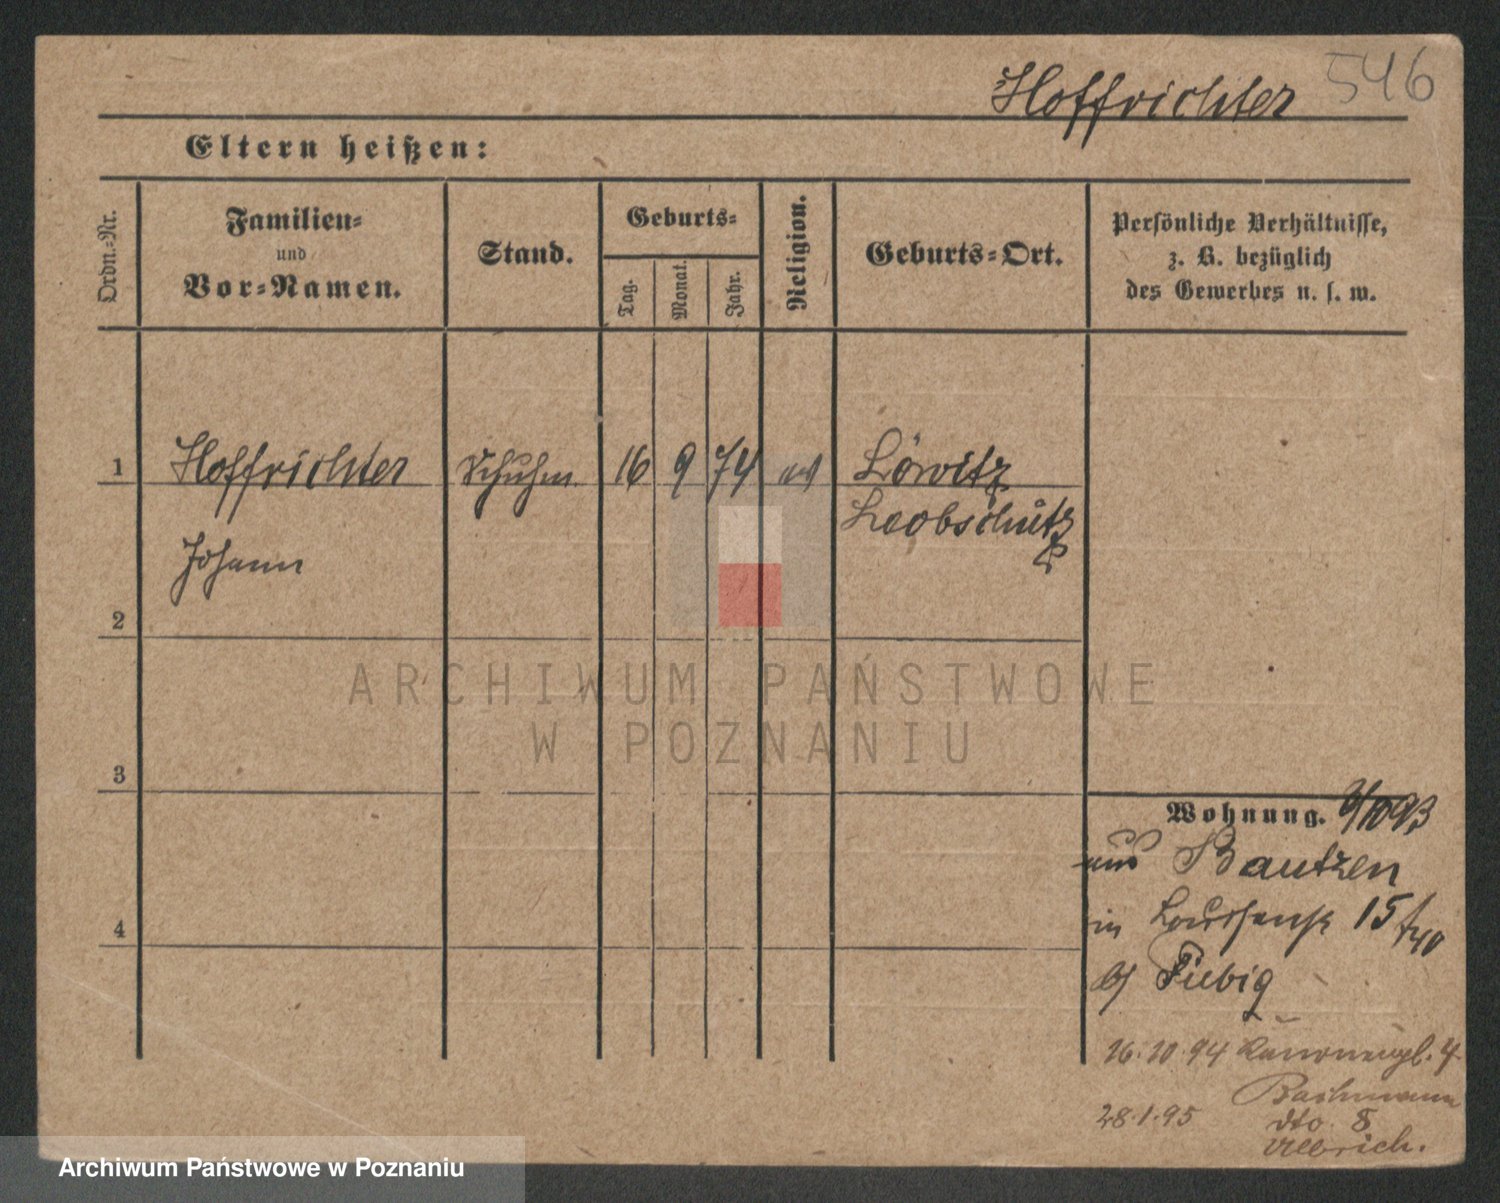 Hoffrichter 546
Eltern heißen:
Ordn.-Nr.
Familien-
und
Vor-Namen.
Stand.
Geburts-
Tag.
Monat.
Jahr.
Religion.
Geburts-Ort.
Persönliche Verhältnisse,
z. B. bezüglich
des Gewerbes u. s. w.
1 Hoffrichter Schuhm. 16 9 74 Löwitz
Leobschütz
Johann
2
3
4
Wohnung. 9/10 93
aus Bautzen
in 15
b/ Fiebig
16.10.94 4
Bachmann
28.1.95 dto. 8
Ullrich.
ARCHIWUM PAŃSTWOWE
W POZNANIU
Archiwum Państwowe w Poznaniu